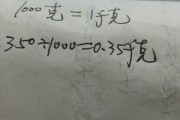 1000克=1千克
350÷1000=0.35千克